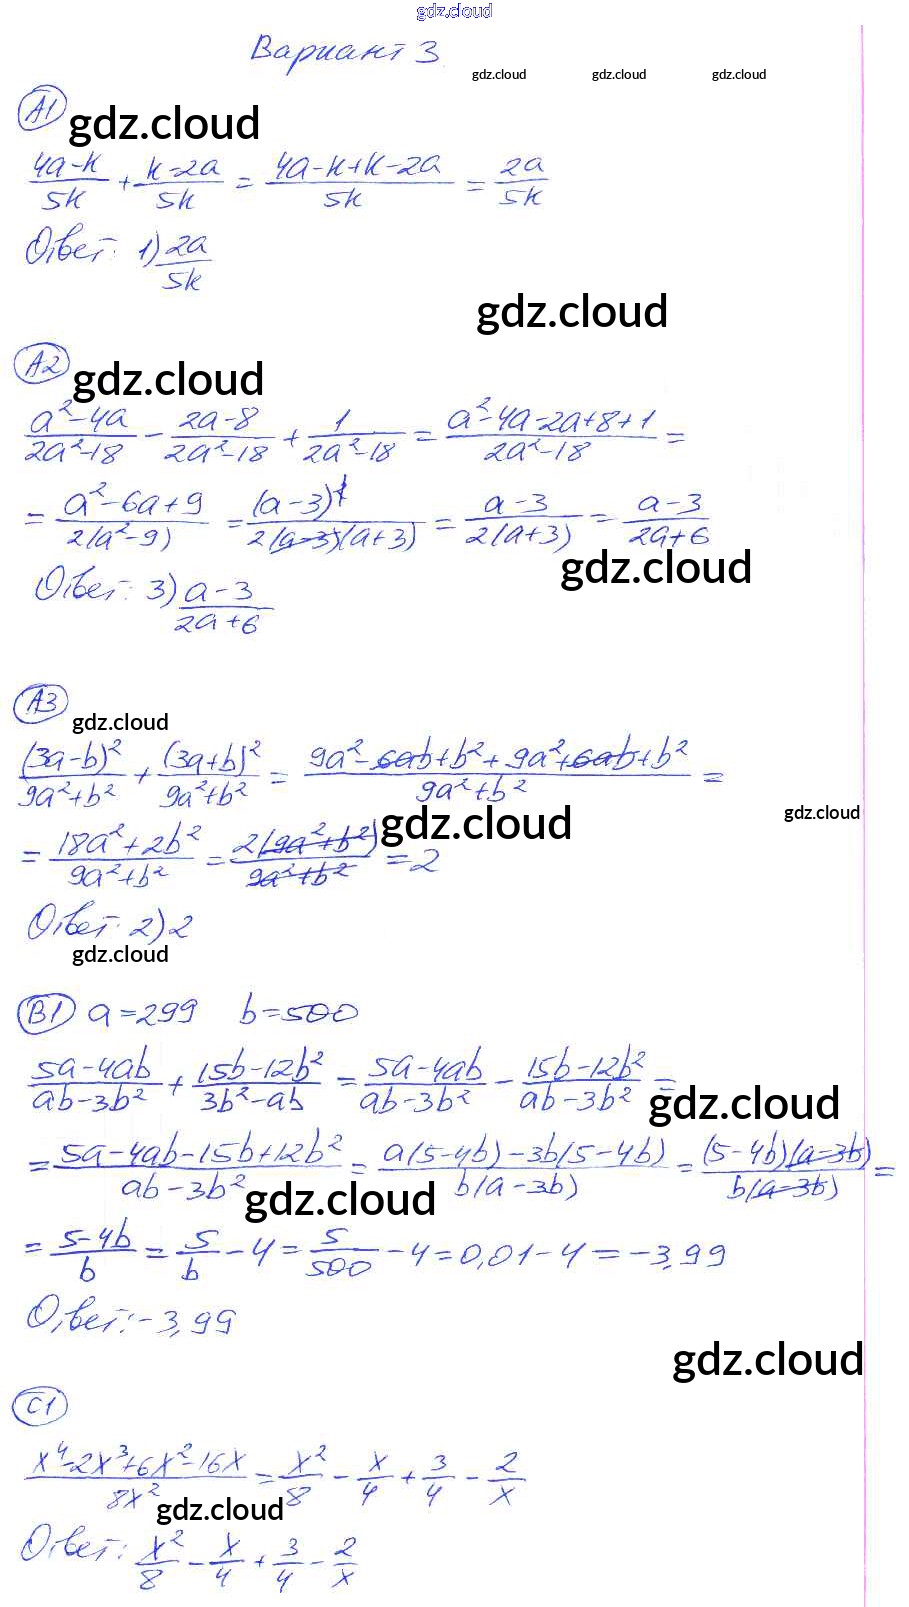 gdz.cloud
Вариант 3
gdz.cloud gdz.cloud gdz.cloud
А1 gdz.cloud
(4a-k)/5k + (k-2a)/5k = (4a-k+k-2a)/5k = 2a/5k
Ответ: 1) 2a/5k
gdz.cloud
А2 gdz.cloud
(a²-4a)/(2a²-18) - (2a-8)/(2a²-18) + 1/(2a²-18) = (a²-4a-2a+8+1)/(2a²-18) =
= (a²-6a+9)/(2(a²-9)) = (a-3)²/(2(a-3)(a+3)) = (a-3)/(2(a+3)) = (a-3)/(2a+6)
gdz.cloud
Ответ: 3) (a-3)/(2a+6)
А3
gdz.cloud
(3a-b)²/(9a²+b²) + (3a+b)²/(9a²+b²) = (9a²-6ab+b²+9a²+6ab+b²)/(9a²+b²) =
gdz.cloud gdz.cloud
= (18a²+2b²)/(9a²+b²) = 2(9a²+b²)/(9a²+b²) = 2
Ответ: 2) 2
gdz.cloud
В1 a=299 b=500
(5a-4ab)/(ab-3b²) + (15b-12b²)/(3b²-ab) = (5a-4ab)/(ab-3b²) - (15b-12b²)/(ab-3b²) =
gdz.cloud
= (5a-4ab-15b+12b²)/(ab-3b²) = (a(5-4b)-3b(5-4b))/(b(a-3b)) = (5-4b)(a-3b)/(b(a-3b)) =
gdz.cloud
= (5-4b)/b = 5/b - 4 = 5/500 - 4 = 0,01 - 4 = -3,99
Ответ: -3,99
gdz.cloud
С1
(x⁴-2x³+6x²-16x)/8x² = x²/8 - x/4 + 3/4 - 2/x
gdz.cloud
Ответ: x²/8 - x/4 + 3/4 - 2/x